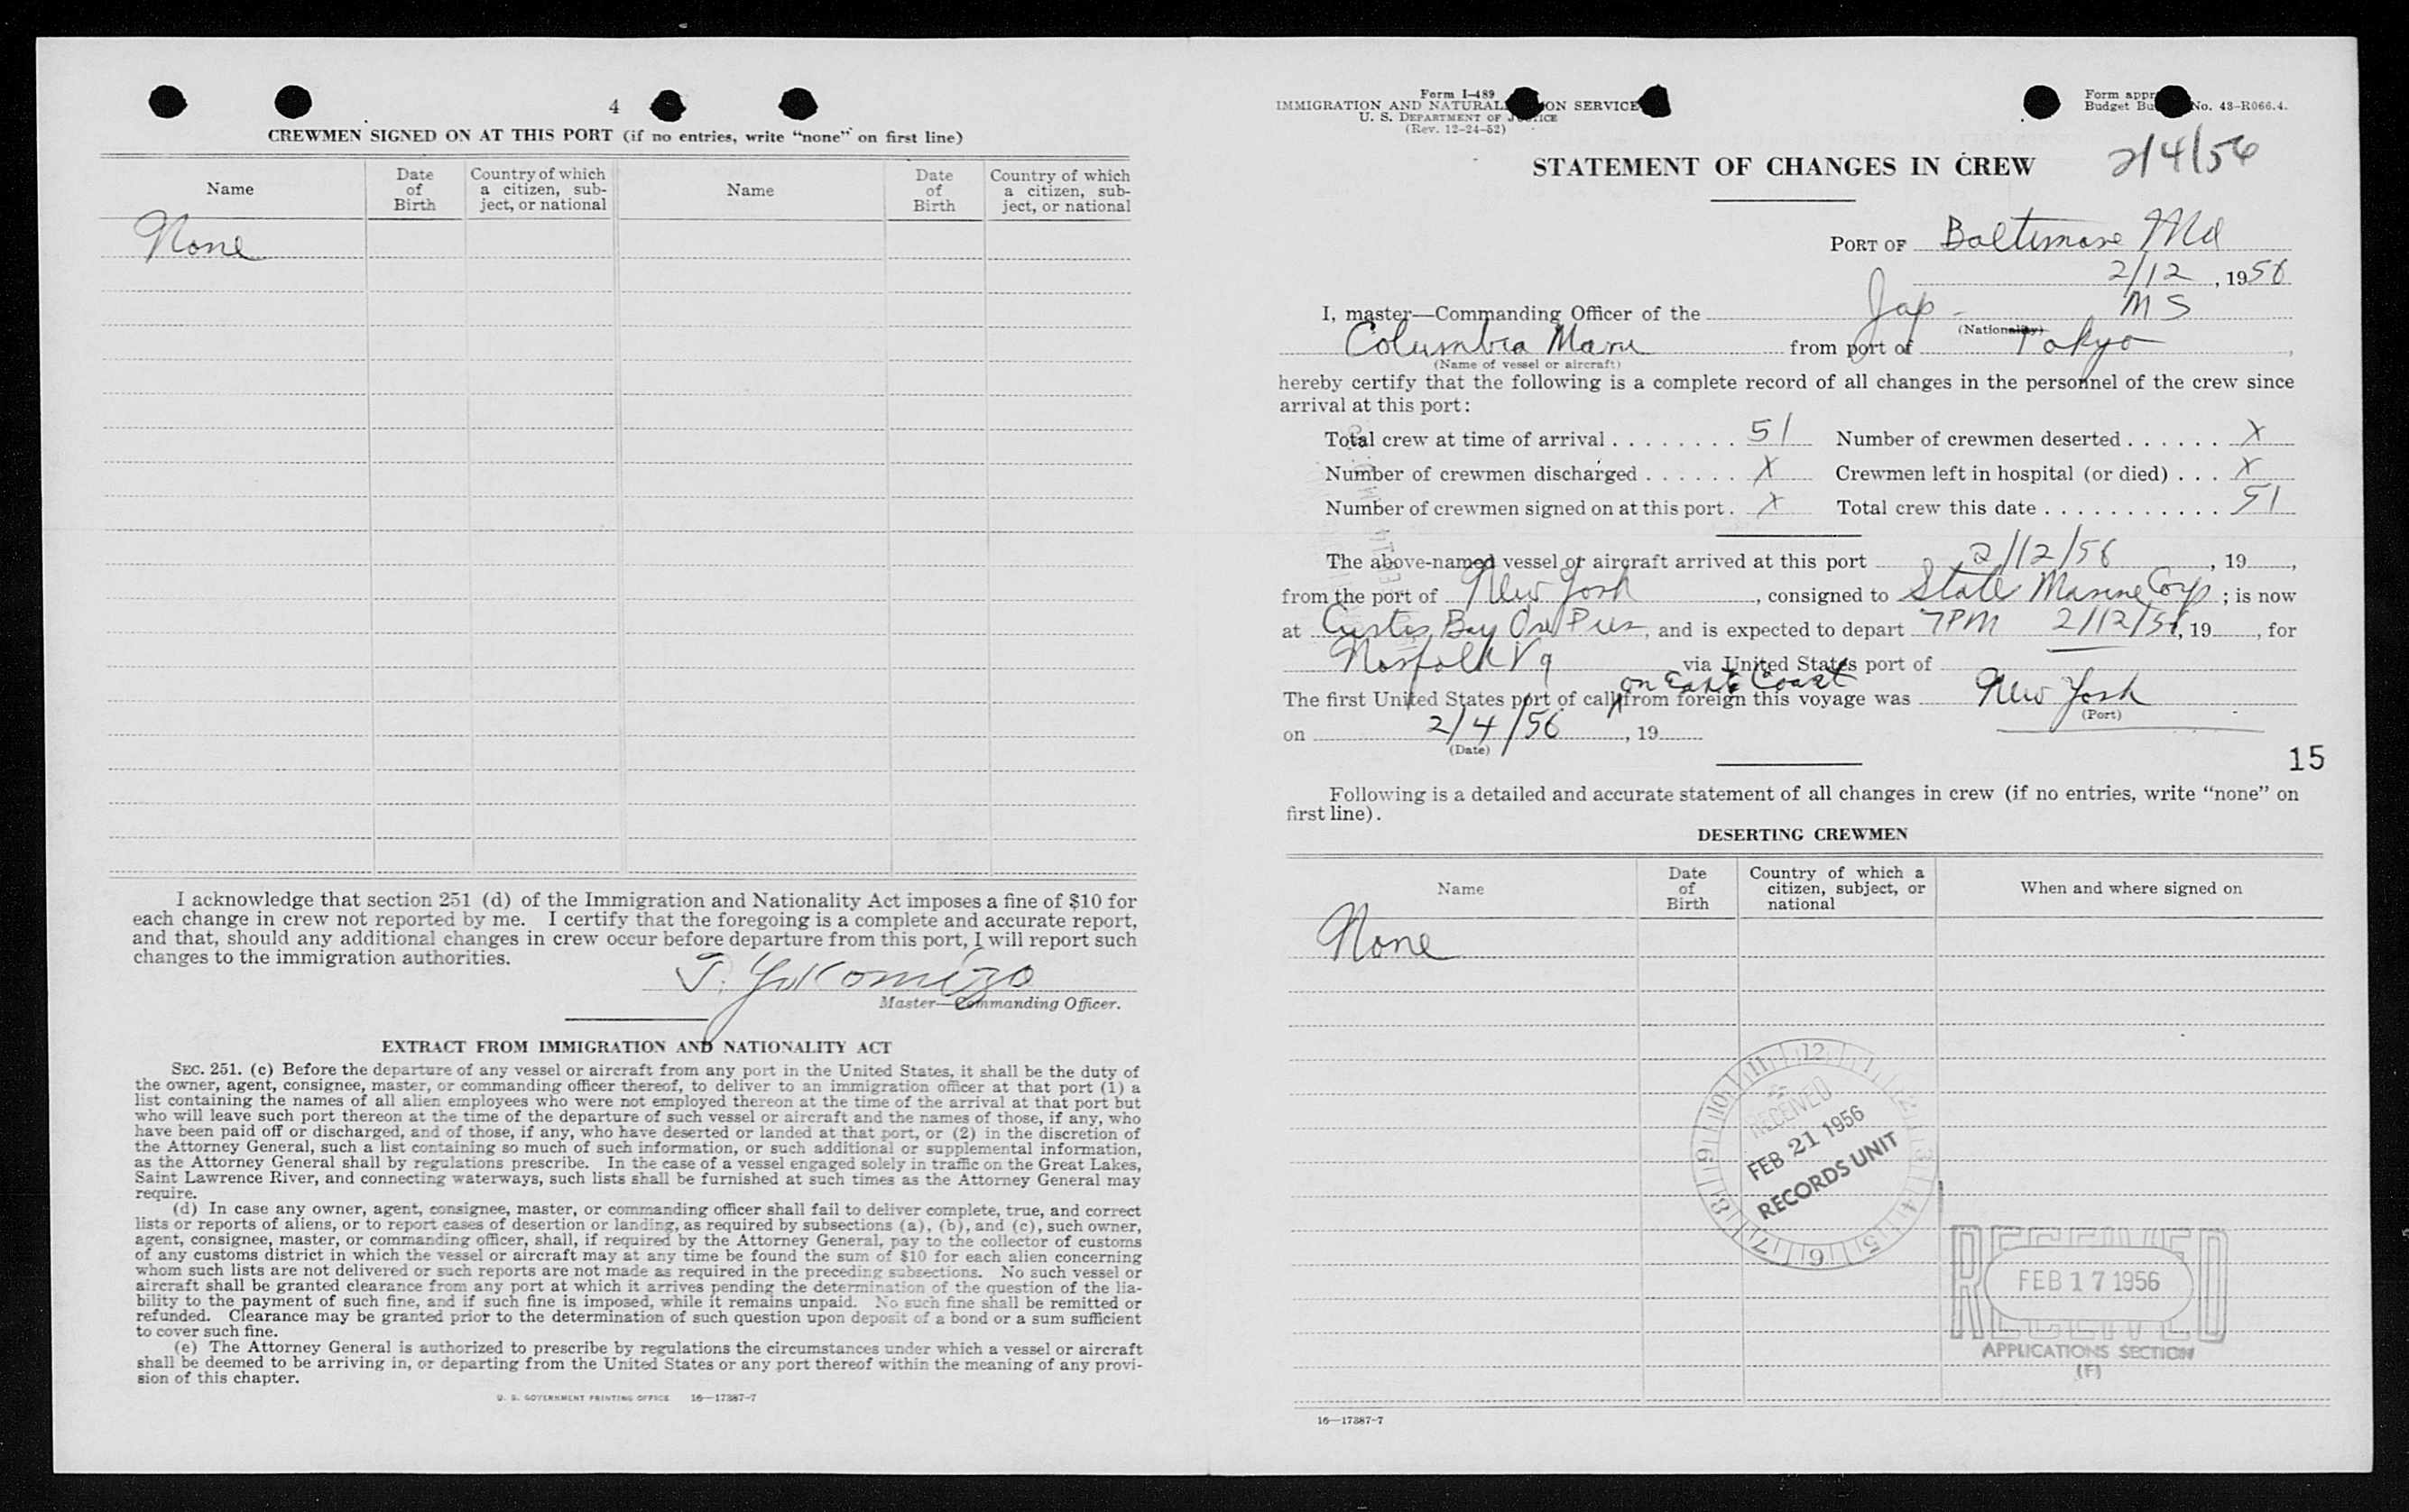 4
CREWMEN SIGNED ON AT THIS PORT (if no entries, write “none” on first line)
Name
Date of Birth
Country of which a citizen, sub-
ject, or national
Name
Date of Birth
Country of which a citizen, sub-
ject, or national
None
I acknowledge that section 251 (d) of the Immigration and Nationality Act imposes a fine of $10 for
each change in crew not reported by me. I certify that the foregoing is a complete and accurate report,
and that, should any additional changes in crew occur before departure from this port, I will report such
changes to the immigration authorities.
Master—Commanding Officer.
EXTRACT FROM IMMIGRATION AND NATIONALITY ACT
SEC. 251. (c) Before the departure of any vessel or aircraft from any port in the United States, it shall be the duty of
the owner, agent, consignee, master, or commanding officer thereof, to deliver to an immigration officer at that port (1) a
list containing the names of all alien employees who were not employed thereon at the time of the arrival at that port but
who will leave such port thereon at the time of the departure of such vessel or aircraft and the names of those, if any, who
have been paid off or discharged, and of those, if any, who have deserted or landed at that port, or (2) in the discretion of
the Attorney General, such a list containing so much of such information, or such additional or supplemental information,
as the Attorney General shall by regulations prescribe. In the case of a vessel engaged solely in traffic on the Great Lakes,
Saint Lawrence River, and connecting waterways, such lists shall be furnished at such times as the Attorney General may
require.
(d) In case any owner, agent, consignee, master, or commanding officer shall fail to deliver complete, true, and correct
lists or reports of aliens, or to report cases of desertion or landing, as required by subsections (a), (b), and (c), such owner,
agent, consignee, master, or commanding officer, shall, if required by the Attorney General, pay to the collector of customs
of any customs district in which the vessel or aircraft may at any time be found the sum of $10 for each alien concerning
whom such lists are not delivered or such reports are not made as required in the preceding subsections. No such vessel or
aircraft shall be granted clearance from any port at which it arrives pending the determination of the question of the lia-
bility to the payment of such fine, and if such fine is imposed, while it remains unpaid. No such fine shall be remitted or
refunded. Clearance may be granted prior to the determination of such question upon deposit of a bond or a sum sufficient
to cover such fine.
(e) The Attorney General is authorized to prescribe by regulations the circumstances under which a vessel or aircraft
shall be deemed to be arriving in, or departing from the United States or any port thereof within the meaning of any provi-
sion of this chapter.
U. S. GOVERNMENT PRINTING OFFICE 16—17387-7
Form I-489
IMMIGRATION AND SERVICE
U. S. DEPARTMENT OF
(Rev. 12-24-52)
Form
Budget No. 43-R066.4.
2/4/56
STATEMENT OF CHANGES IN CREW
PORT OF Baltimore Md
2/12, 1956
I, master—Commanding Officer of the Jap - MS
(Nationality)
Columbia Maru from port of Tokyo,
(Name of vessel or aircraft)
hereby certify that the following is a complete record of all changes in the personnel of the crew since
arrival at this port:
Total crew at time of arrival ........ 51 Number of crewmen deserted ...... X
Number of crewmen discharged ...... X Crewmen left in hospital (or died) ... X
Number of crewmen signed on at this port . X Total crew this date ........... 51
The above-named vessel or aircraft arrived at this port 2/12/56, 19,
from the port of New York, consigned to State Marine Corp; is now
at Curtis Bay Ore Pier, and is expected to depart 7PM 2/12/56, 19, for
Norfolk Va via United States port of
The first United States port of call on East Coast from foreign this voyage was New York
(Port)
on 2/4/56, 19
(Date)
15
Following is a detailed and accurate statement of all changes in crew (if no entries, write “none” on
first line).
DESERTING CREWMEN
Name
Date of Birth
Country of which a citizen, subject, or national
When and where signed on
None
12 1 2 3 4 5 6 7 8 9 10 11
RECEIVED
FEB 21 1956
RECORDS UNIT
RECEIVED
FEB 17 1956
APPLICATIONS SECTION
(F)
16—17387-7